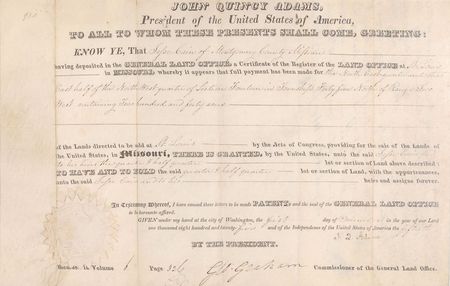 JOHN QUINCY ADAMS,
President of the United States of America,
TO ALL TO WHOM THESE PRESENTS SHALL COME, GREETING:
KNOW YE, That Jesse Cain of Montgomery County Missouri
having deposited in the GENERAL LAND OFFICE a Certificate of the Register of the LAND OFFICE at St Louis
in MISSOURI, whereby it appears that full payment has been made for the North East quarter and the
East half of the North West quarter of Section Fourteen in Township Forty five North of Range Two
West containing Two hundred and forty acres
of the Lands directed to be sold at St Louis by the Acts of Congress, providing for the sale of the Lands of
the United States, in Missouri, THERE IS GRANTED, by the United States, unto the said Jesse Cain and
to his heirs the quarter & half quarter lot or section of Land above described:
TO HAVE AND TO HOLD the said quarter & half quarter lot or section of land, with the appurtenances,
unto the said Jesse Cain and to his heirs and assigns forever.
In Testimony Whereof, I have caused these letters to be made PATENT, and the seal of the GENERAL LAND OFFICE
to be hereunto affixed.
GIVEN under my hand at the city of Washington, the first day of in the year of our Lord
one thousand eight hundred and twenty and of the Independence of the United States of America the fiftieth
J. Q. Adams
BY THE PRESIDENT,
Volume 1 Page 326 Geo Graham Commissioner of the General Land Office.